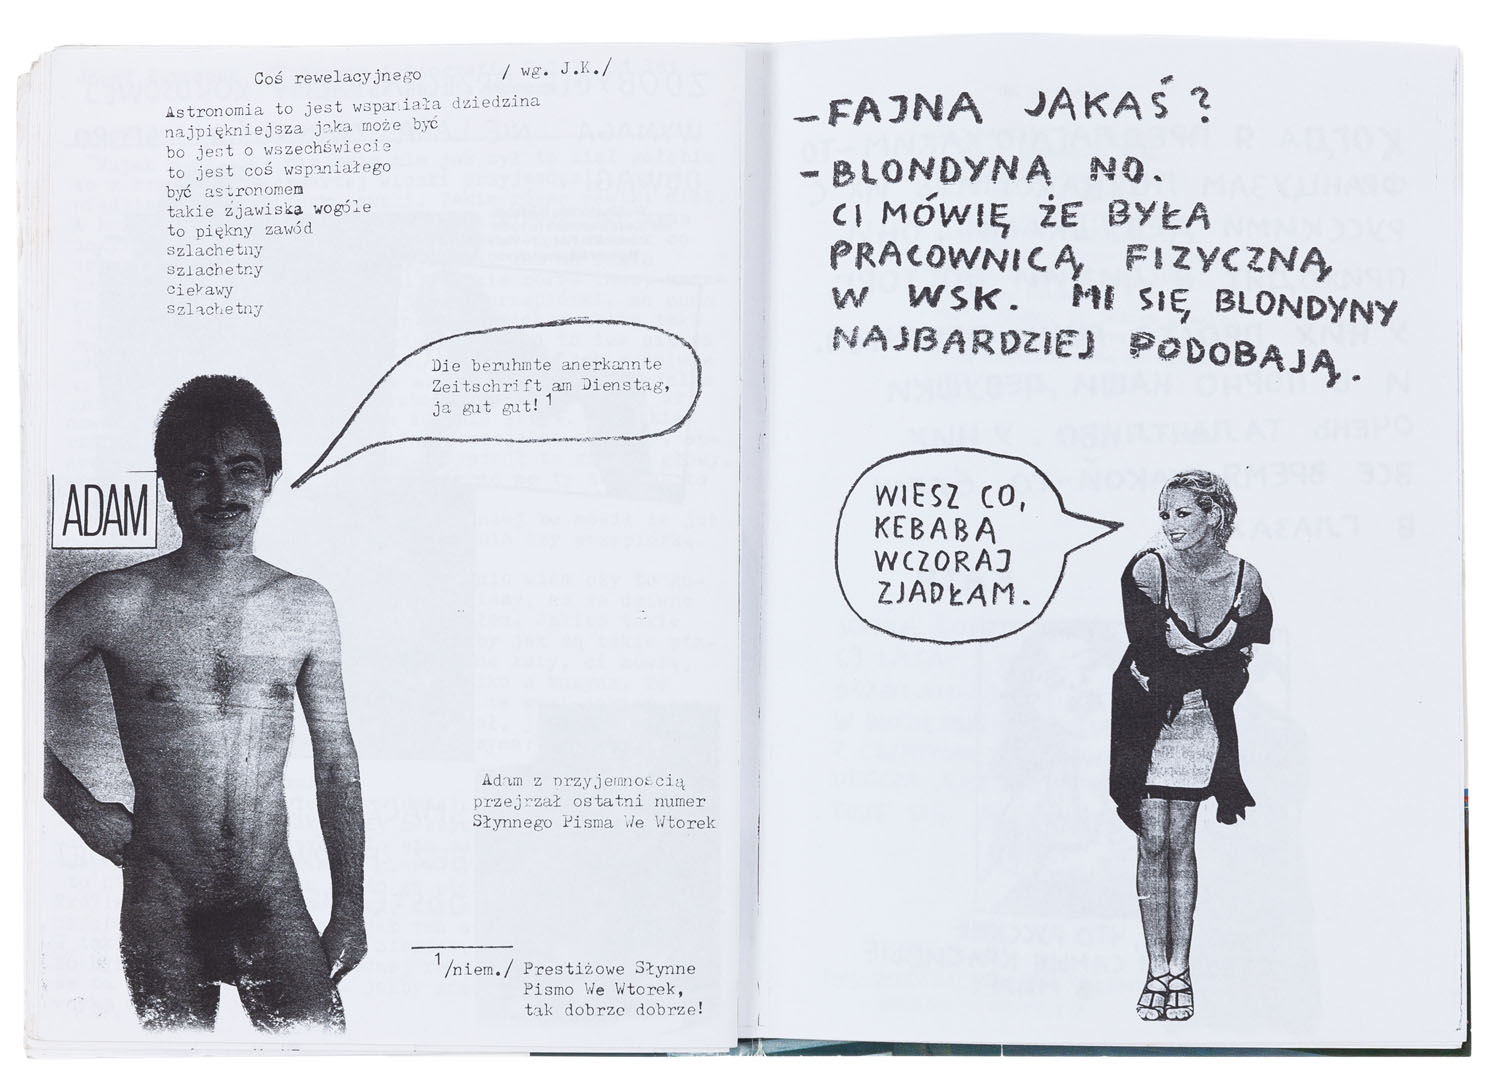 Coś rewelacyjnego / wg. J.K./
Astronomia to jest wspaniała dziedzina
najpiękniejsza jaka może być
bo jest o wszechświecie
to jest coś wspaniałego
być astronomem
takie zjawiska wogóle
to piękny zawód
szlachetny
szlachetny
ciekawy
szlachetny
Die beruhmte anerkannte
Zeitschrift am Dienstag,
ja gut gut! 1
ADAM
Adam z przyjemnością
przejrzał ostatni numer
Słynnego Pisma We Wtorek
1/niem./ Prestiżowe Słynne
Pismo We Wtorek,
tak dobrze dobrze!
-FAJNA JAKAŚ?
-BLONDYNA NO.
CI MÓWIĘ ŻE BYŁA
PRACOWNICĄ FIZYCZNĄ
W WSK. MI SIĘ BLONDYNY
NAJBARDZIEJ PODOBAJĄ.
WIESZ CO,
KEBABA
WCZORAJ
ZJADŁAM.